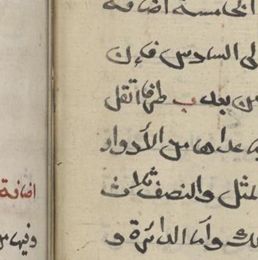 الخامسة اضافة
لى السادس فان
من بعد ب طرفا اثقل
ما عداها من الأدوار
لمثل والنصف ثلاث
لك واما الدائرة و
اضافة
وفيها من